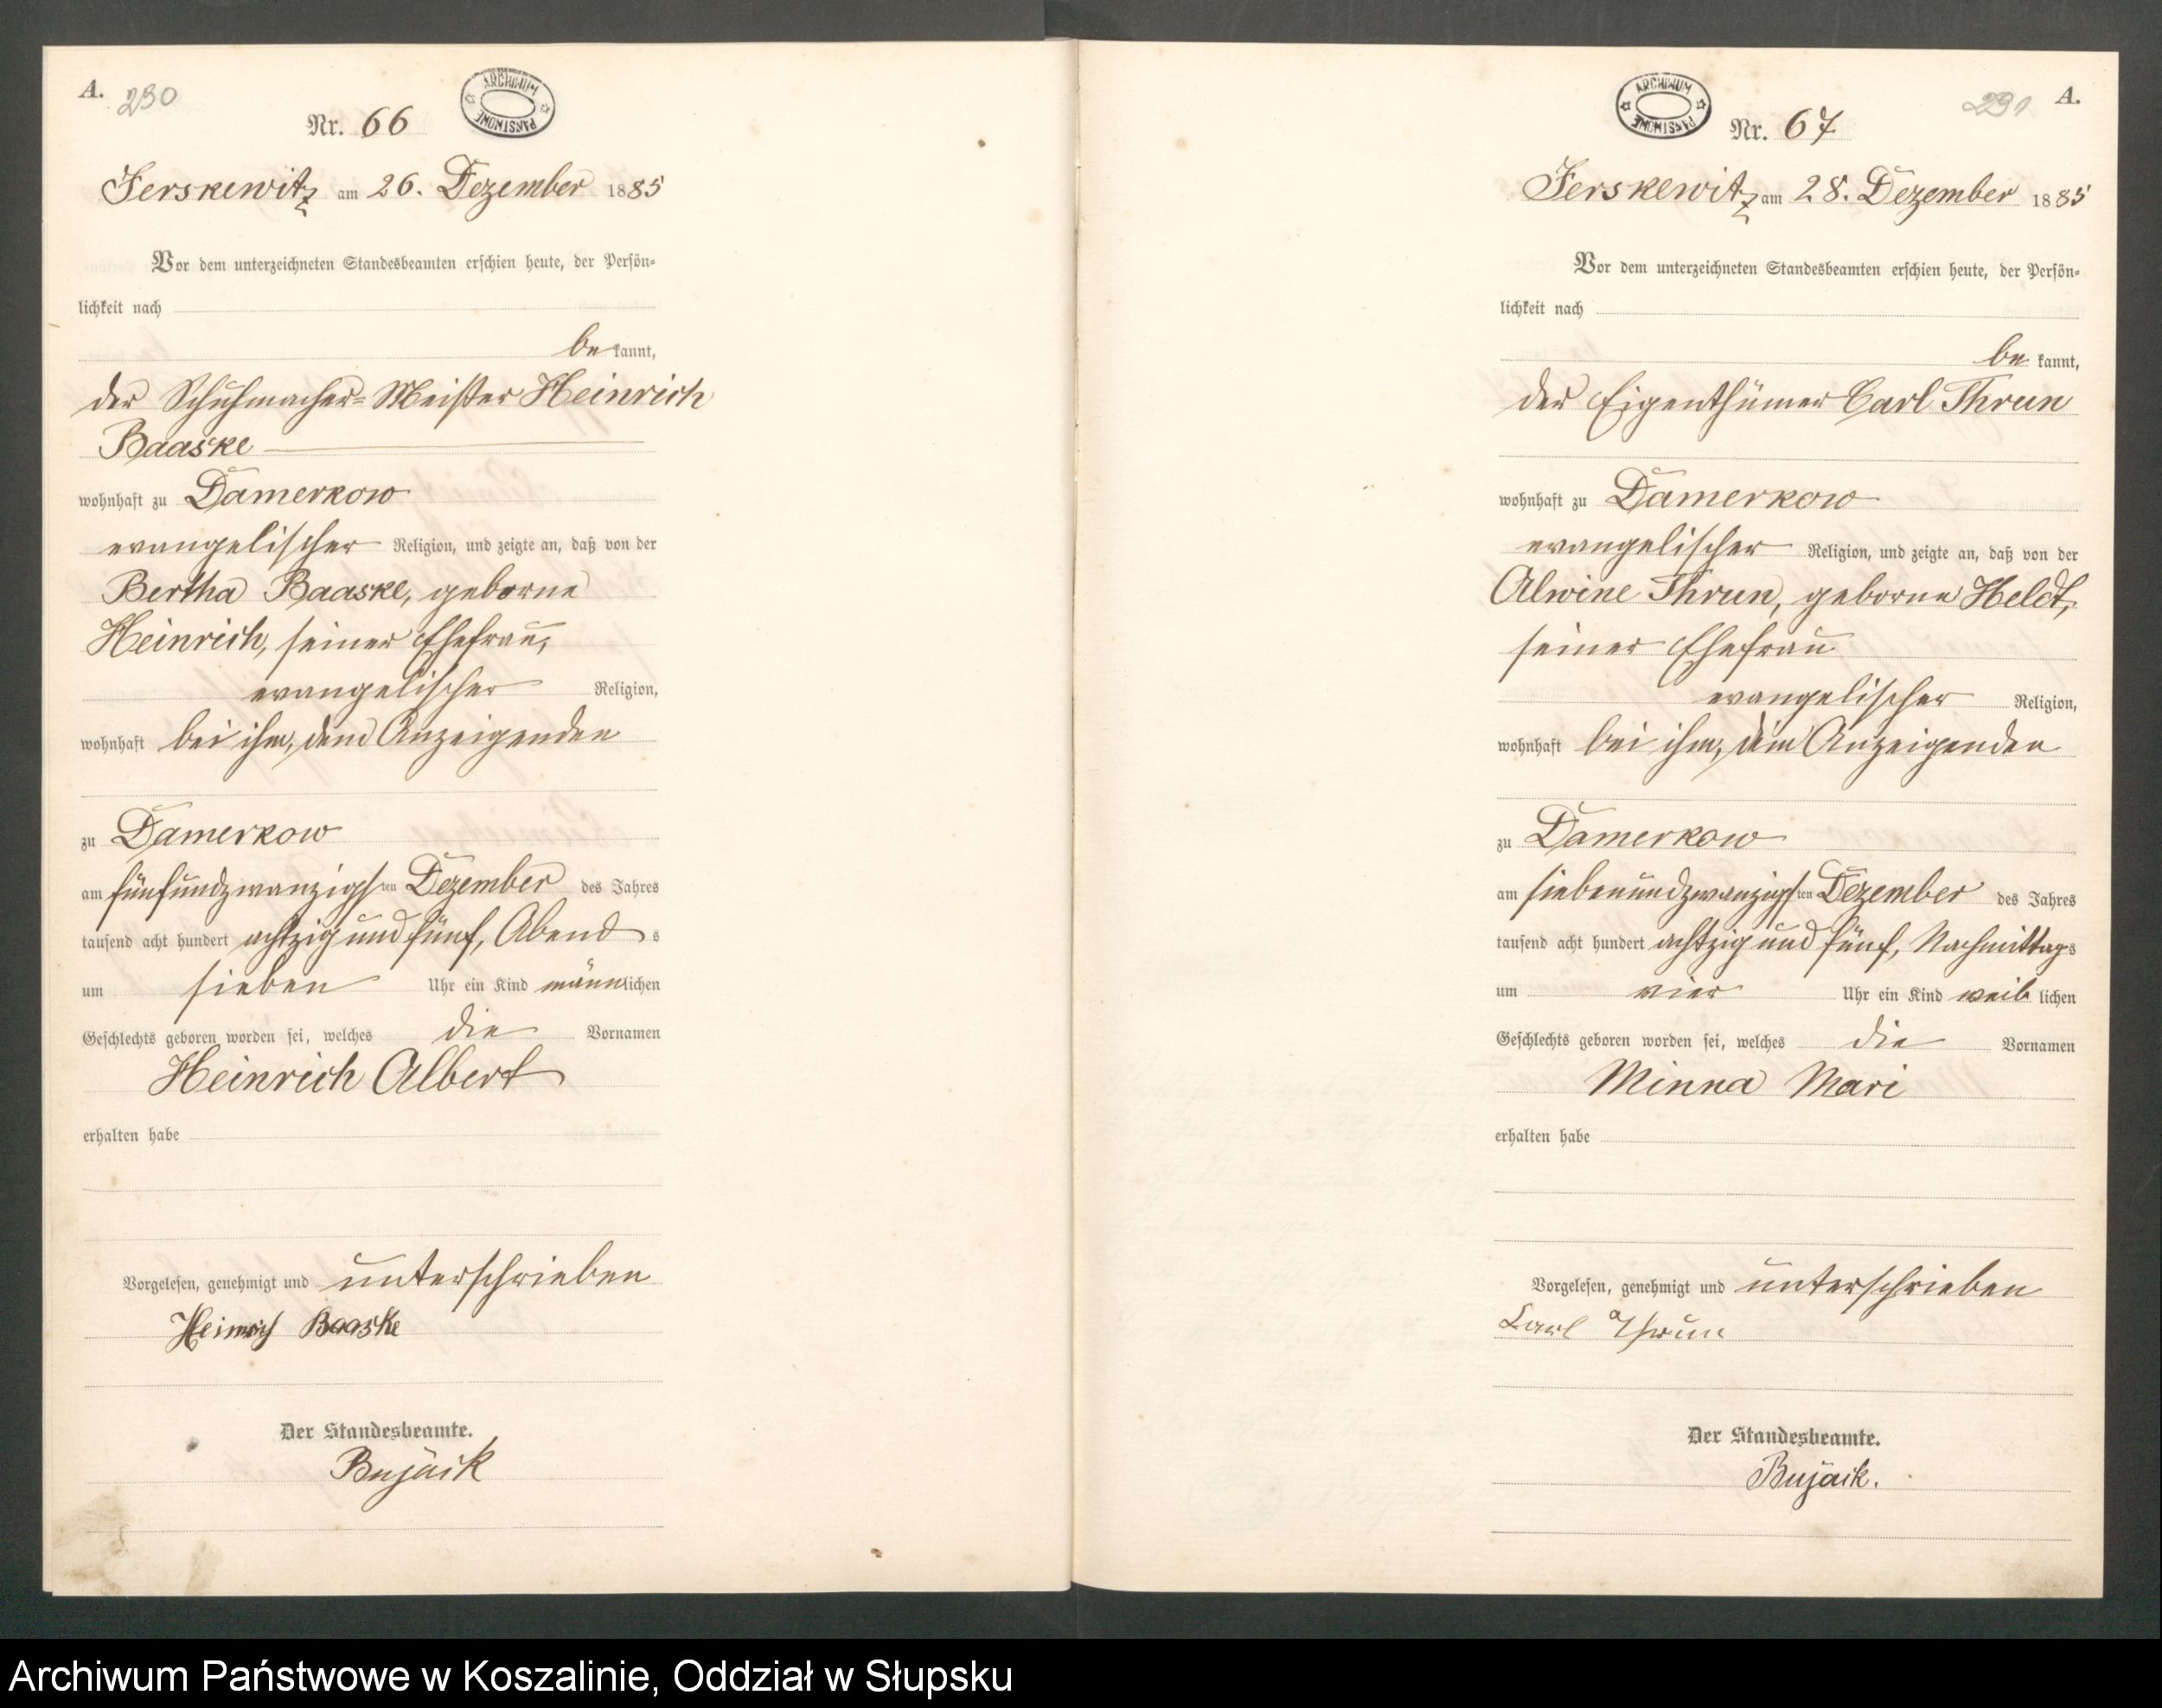 A. 230
ARCHIWUM PAŃSTWOWE
Nr. 66
Jerskewitz am 26. Dezember 1885
Vor dem unterzeichneten Standesbeamten erschien heute, der Persön-
lichkeit nach
be kannt,
der Schuhmacher-Meister Heinrich
Baaske
wohnhaft zu Damerkow
evangelischer Religion, und zeigte an, daß von der
Bertha Baaske, geborne
Heinrich, seiner Ehefrau,
evangelischer Religion,
wohnhaft bei ihm, dem Anzeigenden
zu Damerkow
am fünfundzwanzigsten Dezember des Jahres
tausend acht hundert achtzig und fünf, Abends
um sieben Uhr ein Kind männlichen
Geschlechts geboren worden sei, welches die Vornamen
Heinrich Albert
erhalten habe
Vorgelesen, genehmigt und unterschrieben
Heinrich Baaske
Der Standesbeamte.
Bujack
231 A.
ARCHIWUM PAŃSTWOWE
Nr. 67
Jerskewitz am 28. Dezember 1885
Vor dem unterzeichneten Standesbeamten erschien heute, der Persön-
lichkeit nach
be kannt,
der Eigenthümer Carl Thrun
wohnhaft zu Damerkow
evangelischer Religion, und zeigte an, daß von der
Alwine Thrun, geborne Heldt,
seiner Ehefrau
evangelischer Religion,
wohnhaft bei ihm, dem Anzeigenden
zu Damerkow
am siebenundzwanzigsten Dezember des Jahres
tausend acht hundert achtzig und fünf, Nachmittags
um vier Uhr ein Kind weiblichen
Geschlechts geboren worden sei, welches die Vornamen
Minna Mari
erhalten habe
Vorgelesen, genehmigt und unterschrieben
Carl Thrun
Der Standesbeamte.
Bujack.
Archiwum Państwowe w Koszalinie, Oddział w Słupsku